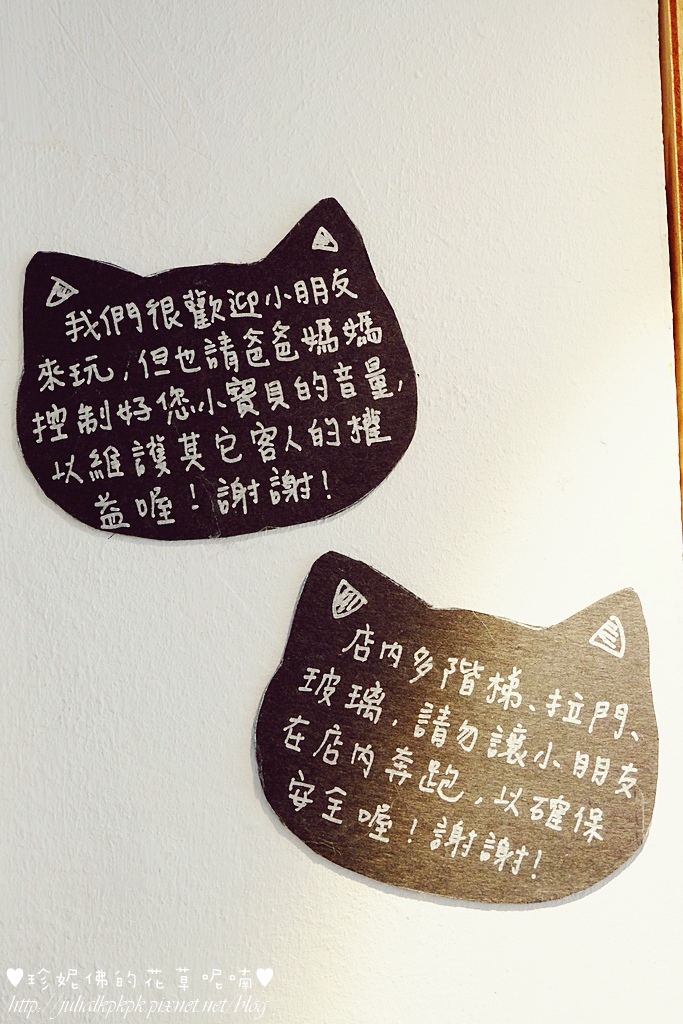 我們很歡迎小朋友
來玩,但也請爸爸媽媽
控制好您小寶貝的音量,
以維護其它客人的權
益喔!謝謝!
店內多階梯、拉門、
玻璃,請勿讓小朋友
在店內奔跑,以確保
安全喔!謝謝!
♥珍妮佛的花草呢喃♥
http://julialkpkpk.pixnet.net/blog